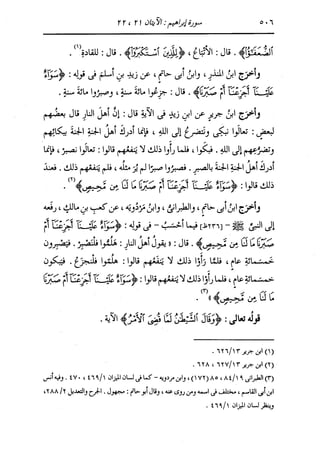 ٥٠٦ سورة إبراهيم : الآيتان ٢١ ، ٢٢
ٱلضُّعَفَٰٓؤُاْ﴾ . قال : الأتباعُ ، ﴿لِلَّذِينَ ٱسۡتَكۡبَرُوٓاْ﴾ . قال : للقادةِ(١) .
وأخرَج ابنُ المنذرِ ، وابنُ أبى حاتمٍ ، عن زيدِ بنِ أسلمَ فى قولِه : ﴿سَوَآءٌ
عَلَيۡنَآ أَجَزِعۡنَآ أَمۡ صَبَرۡنَا﴾ . قال : جزِعوا مائةَ سنةٍ ، وصبَروا مائةَ سنةٍ .
وأخرَج ابنُ جريرٍ عن ابنِ زيدٍ فى الآيةِ قال : إنَّ أهلَ النارِ قال بعضُهم
لبعضٍ : تعالَوا نبكِى ونتضرعُ إلى اللهِ ، فإنما أدرَك أهلُ الجنةِ الجنةَ ببكائِهم
وتضرُّعِهم إلى اللهِ . فبكَوا ، فلما رأَوا ذلك لا ينفعُهم قالوا : تعالَوا نصبرْ ، فإنما
أدرَك أهلُ الجنةِ الجنةَ بالصبرِ . فصبَروا صبرًا لم يُرَ مثلُه ، فلم ينفعْهم ذلك . فعندَ
ذلك قالوا : ﴿سَوَآءٌ عَلَيۡنَآ أَجَزِعۡنَآ أَمۡ صَبَرۡنَا مَا لَنَا مِن مَّحِيصٖ﴾(٢) .
وأخرَج ابنُ أبى حاتمٍ ، والطبرانىُّ ، وابنُ مَرْدُويَه ، عن كعبِ بنِ مالكٍ ، رفَعه
إلى النبىِّ ﷺ - [٢٣٦ظ] فيما أحسَبُ - فى قولِه : ﴿سَوَآءٌ عَلَيۡنَآ أَجَزِعۡنَآ أَمۡ
صَبَرۡنَا مَا لَنَا مِن مَّحِيصٖ﴾ . قال : « يقولُ أهلُ النارِ : هَلُمُّوا فلْنصْبِرْ . فيَصْبِرون
خمسَمائةِ عامٍ ، فلمَّا رأَوا ذلك لا ينفعُهم قالوا : هلُمُّوا فلْنَجْزَعْ . فيبكون
خمسَمائةِ عامٍ ، فلما رأَوا ذلك لا ينفَعُهم قالوا : ﴿سَوَآءٌ عَلَيۡنَآ أَجَزِعۡنَآ أَمۡ صَبَرۡنَا
مَا لَنَا مِن مَّحِيصٖ﴾ »(٣) .
قولُه تعالى : ﴿وَقَالَ ٱلشَّيۡطَٰنُ لَمَّا قُضِيَ ٱلۡأَمۡرُ﴾ الآية .
(١) ابن جرير ٦٢٦/١٣ .
(٢) ابن جرير ٦٢٧/١٣ ، ٦٢٨ .
(٣) الطبرانى ٨٤/١٩ ، ٨٥ (١٧٢) ، وابن مردويه - كما فى لسان الميزان ٤٦٩/١ ، ٤٧٠ . وفيه أنس
ابن أبى القاسم ، مختلف فى اسمه ومن روى عنه ، وقال أبو حاتم : مجهول . الجرح والتعديل ٢٨٨/٢ ،
وينظر لسان الميزان ٤٦٩/١ .